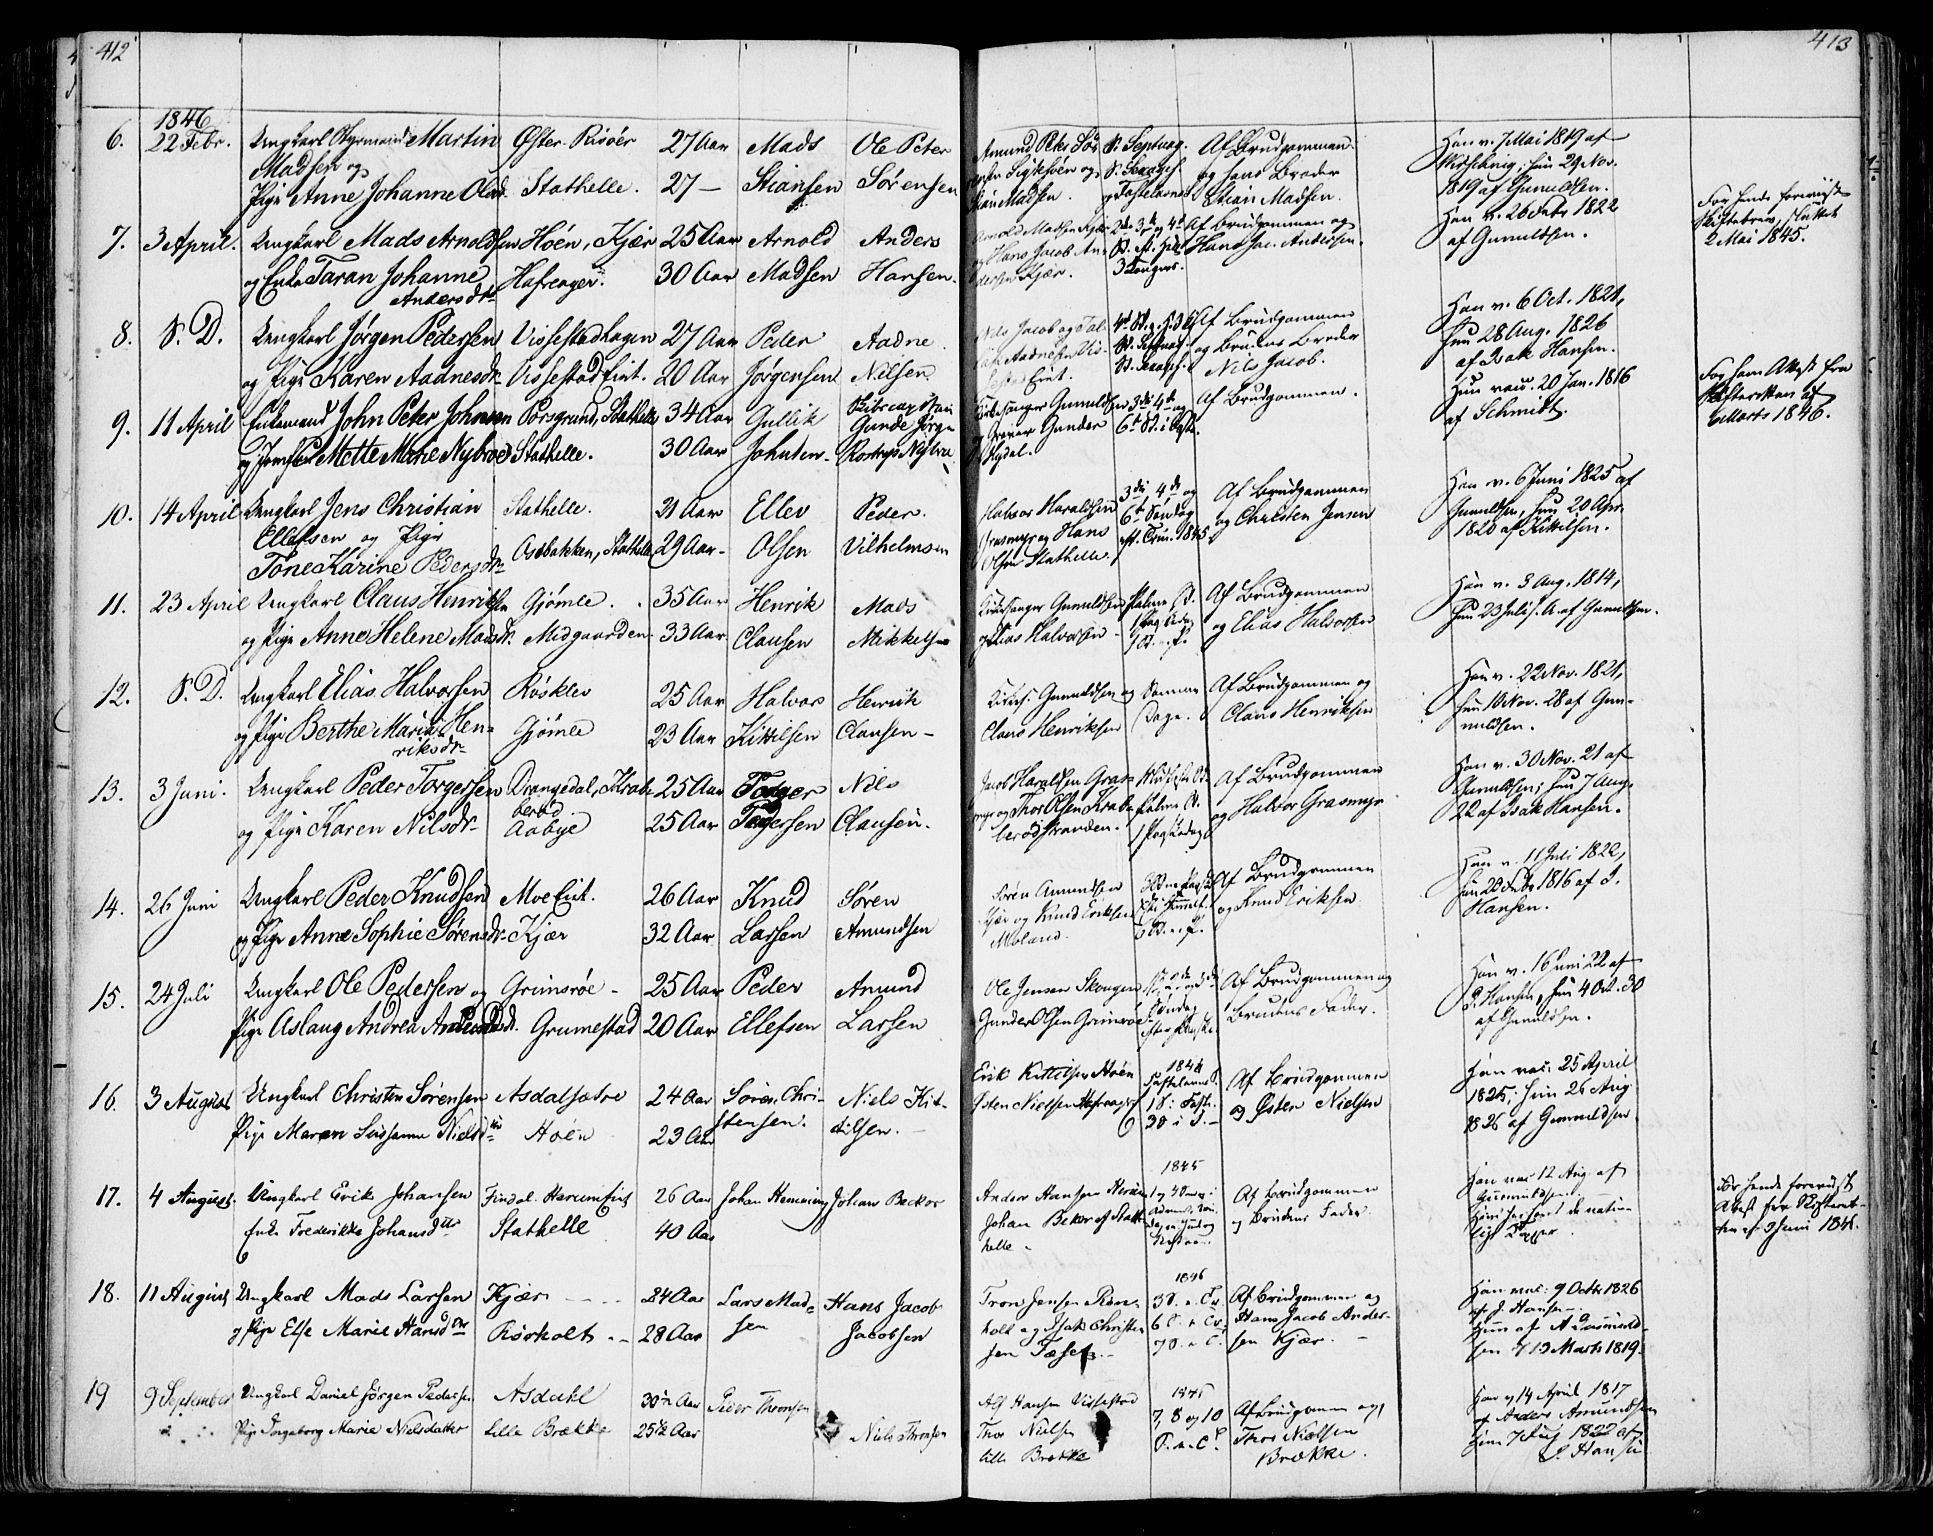 412
413
1846
6. 22 Febr. Ungkarl Styrmand Martin Øster-Risöer 27 Aar Mads Ole Peter
Madsen og
Pige Anne Johanne Olsd. Stathelle. 27 — Stiansen Sörensen
Amund Peter
Stian Madsen.
S. Septuag. Af Brudgommen
S. Sexages. og hans Broder
Fastelavns Stian Madsen.
Han v. 7 Mai 1819 af
hun 29 Nov.
1819 af Gunuldsen.
7. 3 April. Ungkarl Mads Arnoldsen Höen, Kjær 25 Aar Arnold Anders
og Enke Taran Johanne Hafsager. 30 Aar Madsen Hansen.
Andersdr
Arnold Madsen
og Hans Jacob An-
dersen Kjær.
2de 3die og 4de Af Brudgommen og
Hans Jac. Andersen.
Han v. 26 Febr 1822
af Gunuldsen.
For hende foreviist
Skiftebrev, sluttet
2 Mai 1845.
8. S. D. Ungkarl Jörgen Pedersen Vissestadhagen 27 Aar Peder Aadne
og Pige Karen Aadnesdr Vissestad Eint. 20 Aar Jörgensen Nilsen.
Nils Jacob og
Eint.
Af Brudgommen
og Brudens Broder
Nils Jacob.
Han v. 6 Oct. 1821,
hun 28 Aug. 1826
af Isak Hansen.
9. 11 April Enkemand John Peter Johnsen Porsgrund, Stathelle 34 Aar Gullik
Gunde Jörgen
og Jomfru Mette Marie Nybroe Stathelle. 30 Aar Johnsen.
Kirkesanger Gunuldsen
og Graver Gunder
Rydal.
3die 4de og
6te S. i Faste.
Af Brudgommen.
Hun vac. 20 Jan. 1816
af Schmidt.
For ham Attest fra
Skifteretten af
6 Marts 1846.
10. 14 April Ungkarl Jens Christian Stathelle. 21 Aar Ellev Peder
Ellefsen og Pige
Tone Karine Pedersdr Asebakken, Stathelle 29 Aar Olsen Vilhelmsen
Halvor Haraldsen
Grasmyr og Hans
Olsen Stathelle.
3die 4de og
6te Söndag
eft. Trin. 1845
Af Brudgommen
og Christen Jensen
Han v. 6 Juni 1825 af
Gunuldsen, hun 20 Apr.
1820 af Kittilsen.
11. 23 April Ungkarl Claus Henriksen Gjömle. 35 Aar Henrik Mads
og Pige Anne Helene Madsdr. Midgaarden. 33 Aar Clausen Mikkelsen
Kirkesanger Gunuldsen
og Elias Halvorsen
Palme S.
Af Brudgommen
og Elias Halvorsen
Han v. 3 Aug. 1814,
hun 23 Juli s. A. af Gunuldsen.
12. S. D. Ungkarl Elias Halvorsen Rösklev 25 Aar Halvor Henrik
og Pige Berthe Marie Hen- Gjömle 23 Aar Kittilsen Clausen
riksdr
Kirkes. Gunuldsen og
Claus Henriksen
Samme
Dage.
Af Brudgommen og
Claus Henriksen
Han v. 22 Nov. 1821,
hun 10 Nov. 28 af Gun-
nuldsen.
13. 3 Juni. Ungkarl Peder Torgersen Drangedal, Krab- 25 Aar Torger Nils
beröd
og Pige Karen Nilsdr Aabye 25 Aar Torgersen Clausen.
Jacob Haraldsen Gras-
myr og Thor Olsen Krab-
berödstranden.
Palme S.
Af Brudgommen
og Halvor Grasmyr
Han v. 30 Nov. 21 af
Gunuldsen; hun 7 Aug.
22 af Isak Hansen.
14. 26 Juni Ungkarl Peder Knudsen Moe Eint. 26 Aar Knud Sören
og Pige Anne Sophie Sörensdr. Kjær 32 Aar Larsen Amundsen
Sören Amundsen
Kjær og Knud Eriksen
Moland.
Af Brudgommen
og Knud Eriksen
Han v. 11 Juli 1822,
hun 28 Febr 1816 af I.
Hansen.
15. 24 Juli Ungkarl Ole Pedersen og Grimsröe 25 Aar Peder Amund
Pige Aslaug Andrea Amundsdr. Grumestad 20 Aar Ellefsen Larsen
Ole Jensen Skougen
Gunder Olsen Grimsröe
Söndag
Af Brudgommen og
Brudens Fader.
Han v. 16 Juni 22 af
I. Hansen, hun 4 Oct. 30
af Gunuldsen.
16. 3 August Ungkarl Christen Sörensen Asdalsætre 24 Aar Sören Chri- Niels Kit-
stensen. tilsen.
Pige Maren Susanne Nielsdtr Höen 23 Aar
Erik Kittilsen Höen
Östen Nielsen Hafsager
1846
Fastelavns S.
Af Brudgommen
og Östen Nielsen
Han vac. 25 April
1825; hun 26 Aug
1826 af Gunuldsen
17. 4 August Ungkarl Erik Johansen Findal. Herum Eint 26 Aar Johan Hemming Johan Becker
Enke Frederikke Johansdtr Stathelle 40 Aar
Anders Hansen
Johan Becker af Stat-
helle
1845
Af Brudgommen
og Brudens Fader
Han vac 12 Aug af
Gunnuldsen.
de natur-
lige Kopper.
For hende foreviist
Attest fra Skifteret-
ten af 9 Juni 1846.
18. 11 August Ungkarl Mads Larsen Kjær 24 Aar Lars Mad- Hans Jacob
sen Jacobsen
og Pige Else Marie Hansdtr Rörholt 28 Aar
Tron Jensen Rör-
holt og Isak Christen-
sen
1846
Af Brudgommen og
Hans Jacob Ander-
sen Kjær.
Han vac. 9 Octbr 1826
af J. Hansen
Hun af A. Gasmund-
sen d 13 Marts 1819.
19 9 September Ungkarl Daniel Jörgen Pedersen Asdahl 30 Aar Peder Thronsen
Pige Ingeborg Marie Nielsdatter Lille Brække 25 1/2 Aar Niels Thronsen
Alf Hansen Vissestad
Thor Nielsen
lille Brække
1845
7, 8 og 10
S. e. T.
Af Brudgommen og
Thor Nielsen
Brække.
Han v. 14 April 1817
af Anders Amundsen
Hun 7 Aug 1820 af
I. Hansen